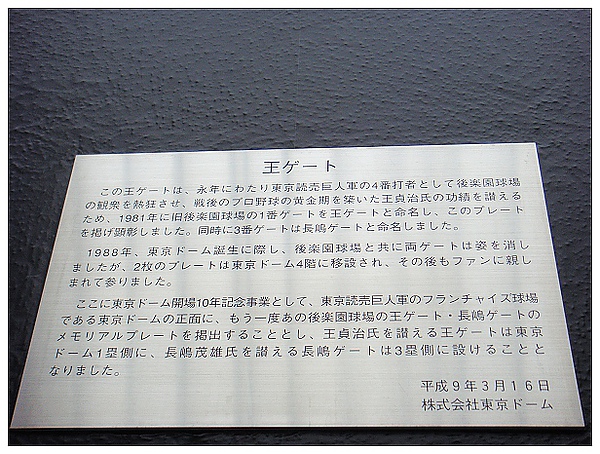 王ゲート
この王ゲートは、永年にわたり東京読売巨人軍の4番打者として後楽園球場
の観衆を熱狂させ、戦後のプロ野球の黄金期を築いた王貞治氏の功績を讃える
ため、1981年に旧後楽園球場の1番ゲートを王ゲートと命名し、このプレート
を掲げ顕彰しました。同時に3番ゲートは長嶋ゲートと命名しました。
1988年、東京ドーム誕生に際し、後楽園球場と共に両ゲートは姿を消し
ましたが、2枚のプレートは東京ドーム4階に移設され、その後もファンに親し
まれて参りました。
ここに東京ドーム開場10年記念事業として、東京読売巨人軍のフランチャイズ球場
である東京ドームの正面に、もう一度あの後楽園球場の王ゲート・長嶋ゲートの
メモリアルプレートを掲出することとし、王貞治氏を讃える王ゲートは東京
ドーム1塁側に、長嶋茂雄氏を讃える長嶋ゲートは3塁側に設けることと
なりました。
平成9年3月16日
株式会社東京ドーム